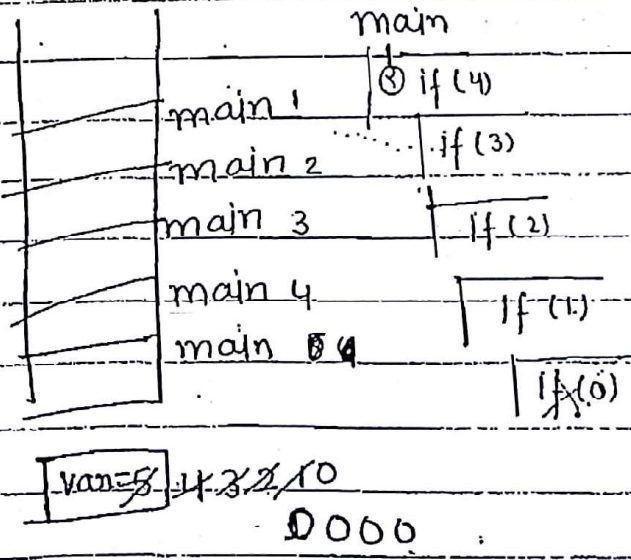 main
if (4)
main 1
if (3)
main 2
main 3
if (2)
main 4
if (1)
main
if (0)
var=5 4 3 2 1 0
0 0 0 0